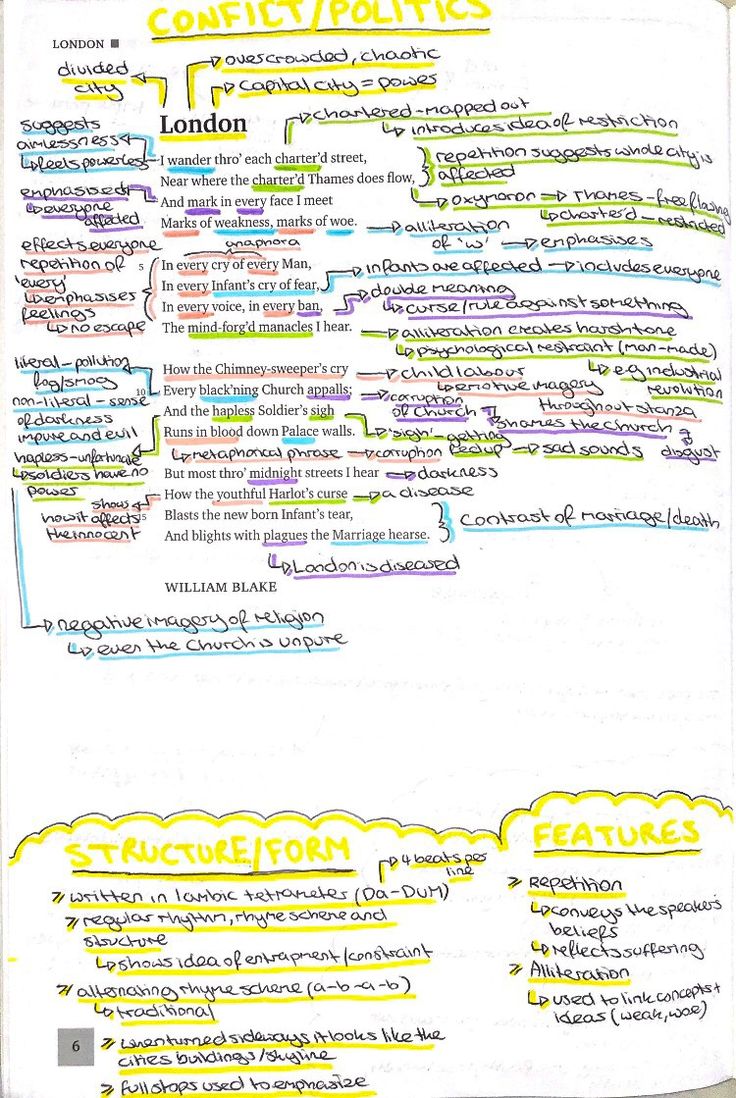 CONFICT/POLITICS
LONDON ■
divided
city
overcrowded, chaotic
capital city = power
London
chartered - mapped out
introduces idea of restriction
suggests
aimlessness
feels powerless
I wander thro' each charter'd street,
Near where the charter'd Thames does flow,
And mark in every face I meet
Marks of weakness, marks of woe.
repetition suggests whole city is
affected
oxymoron → Thames - free flowing
charter'd - restricted
emphasises
everyone
affected
alliteration
of 'w' → emphasises
effects everyone
repetition of
'every'
emphasises
feelings
no escape
anaphora
5
In every cry of every Man,
In every Infant's cry of fear,
In every voice, in every ban,
The mind-forg'd manacles I hear.
infants are affected → includes everyone
double meaning
curse/rule against something
alliteration creates harsh tone
psychological restraint (man-made)
e.g industrial
revolution
literal - pollution
fog/smog
non-literal - sense
of darkness
impure and evil
hapless - unfortunate
soldiers have no
power
How the Chimney-sweeper's cry
10
Every black'ning Church appalls;
And the hapless Soldier's sigh
Runs in blood down Palace walls.
child labour
emotive imagery
throughout stanza
corruption
of church
shames the church
disgust
'sigh' - getting
fed up → sad sounds
metaphorical phrase → corruption
But most thro' midnight streets I hear
How the youthful Harlot's curse
15
Blasts the new born Infant's tear,
And blights with plagues the Marriage hearse.
darkness
a disease
shows
how it affects
the innocent
contrast of marriage/death
London is diseased
WILLIAM BLAKE
negative imagery of religion
even the church is unpure
STRUCTURE/FORM
4 beats per
line
written in Iambic tetrameter (Da-DUM)
regular rhythm, rhyme scheme and
structure
shows idea of entrapment/constraint
alternating rhyme scheme (a-b-a-b)
traditional
when turned sideways it looks like the
cities buildings/skyline
full stops used to emphasize
FEATURES
Repetition
conveys the speakers
beliefs
reflects suffering
Alliteration
used to link concepts +
ideas (weak, woe)
6